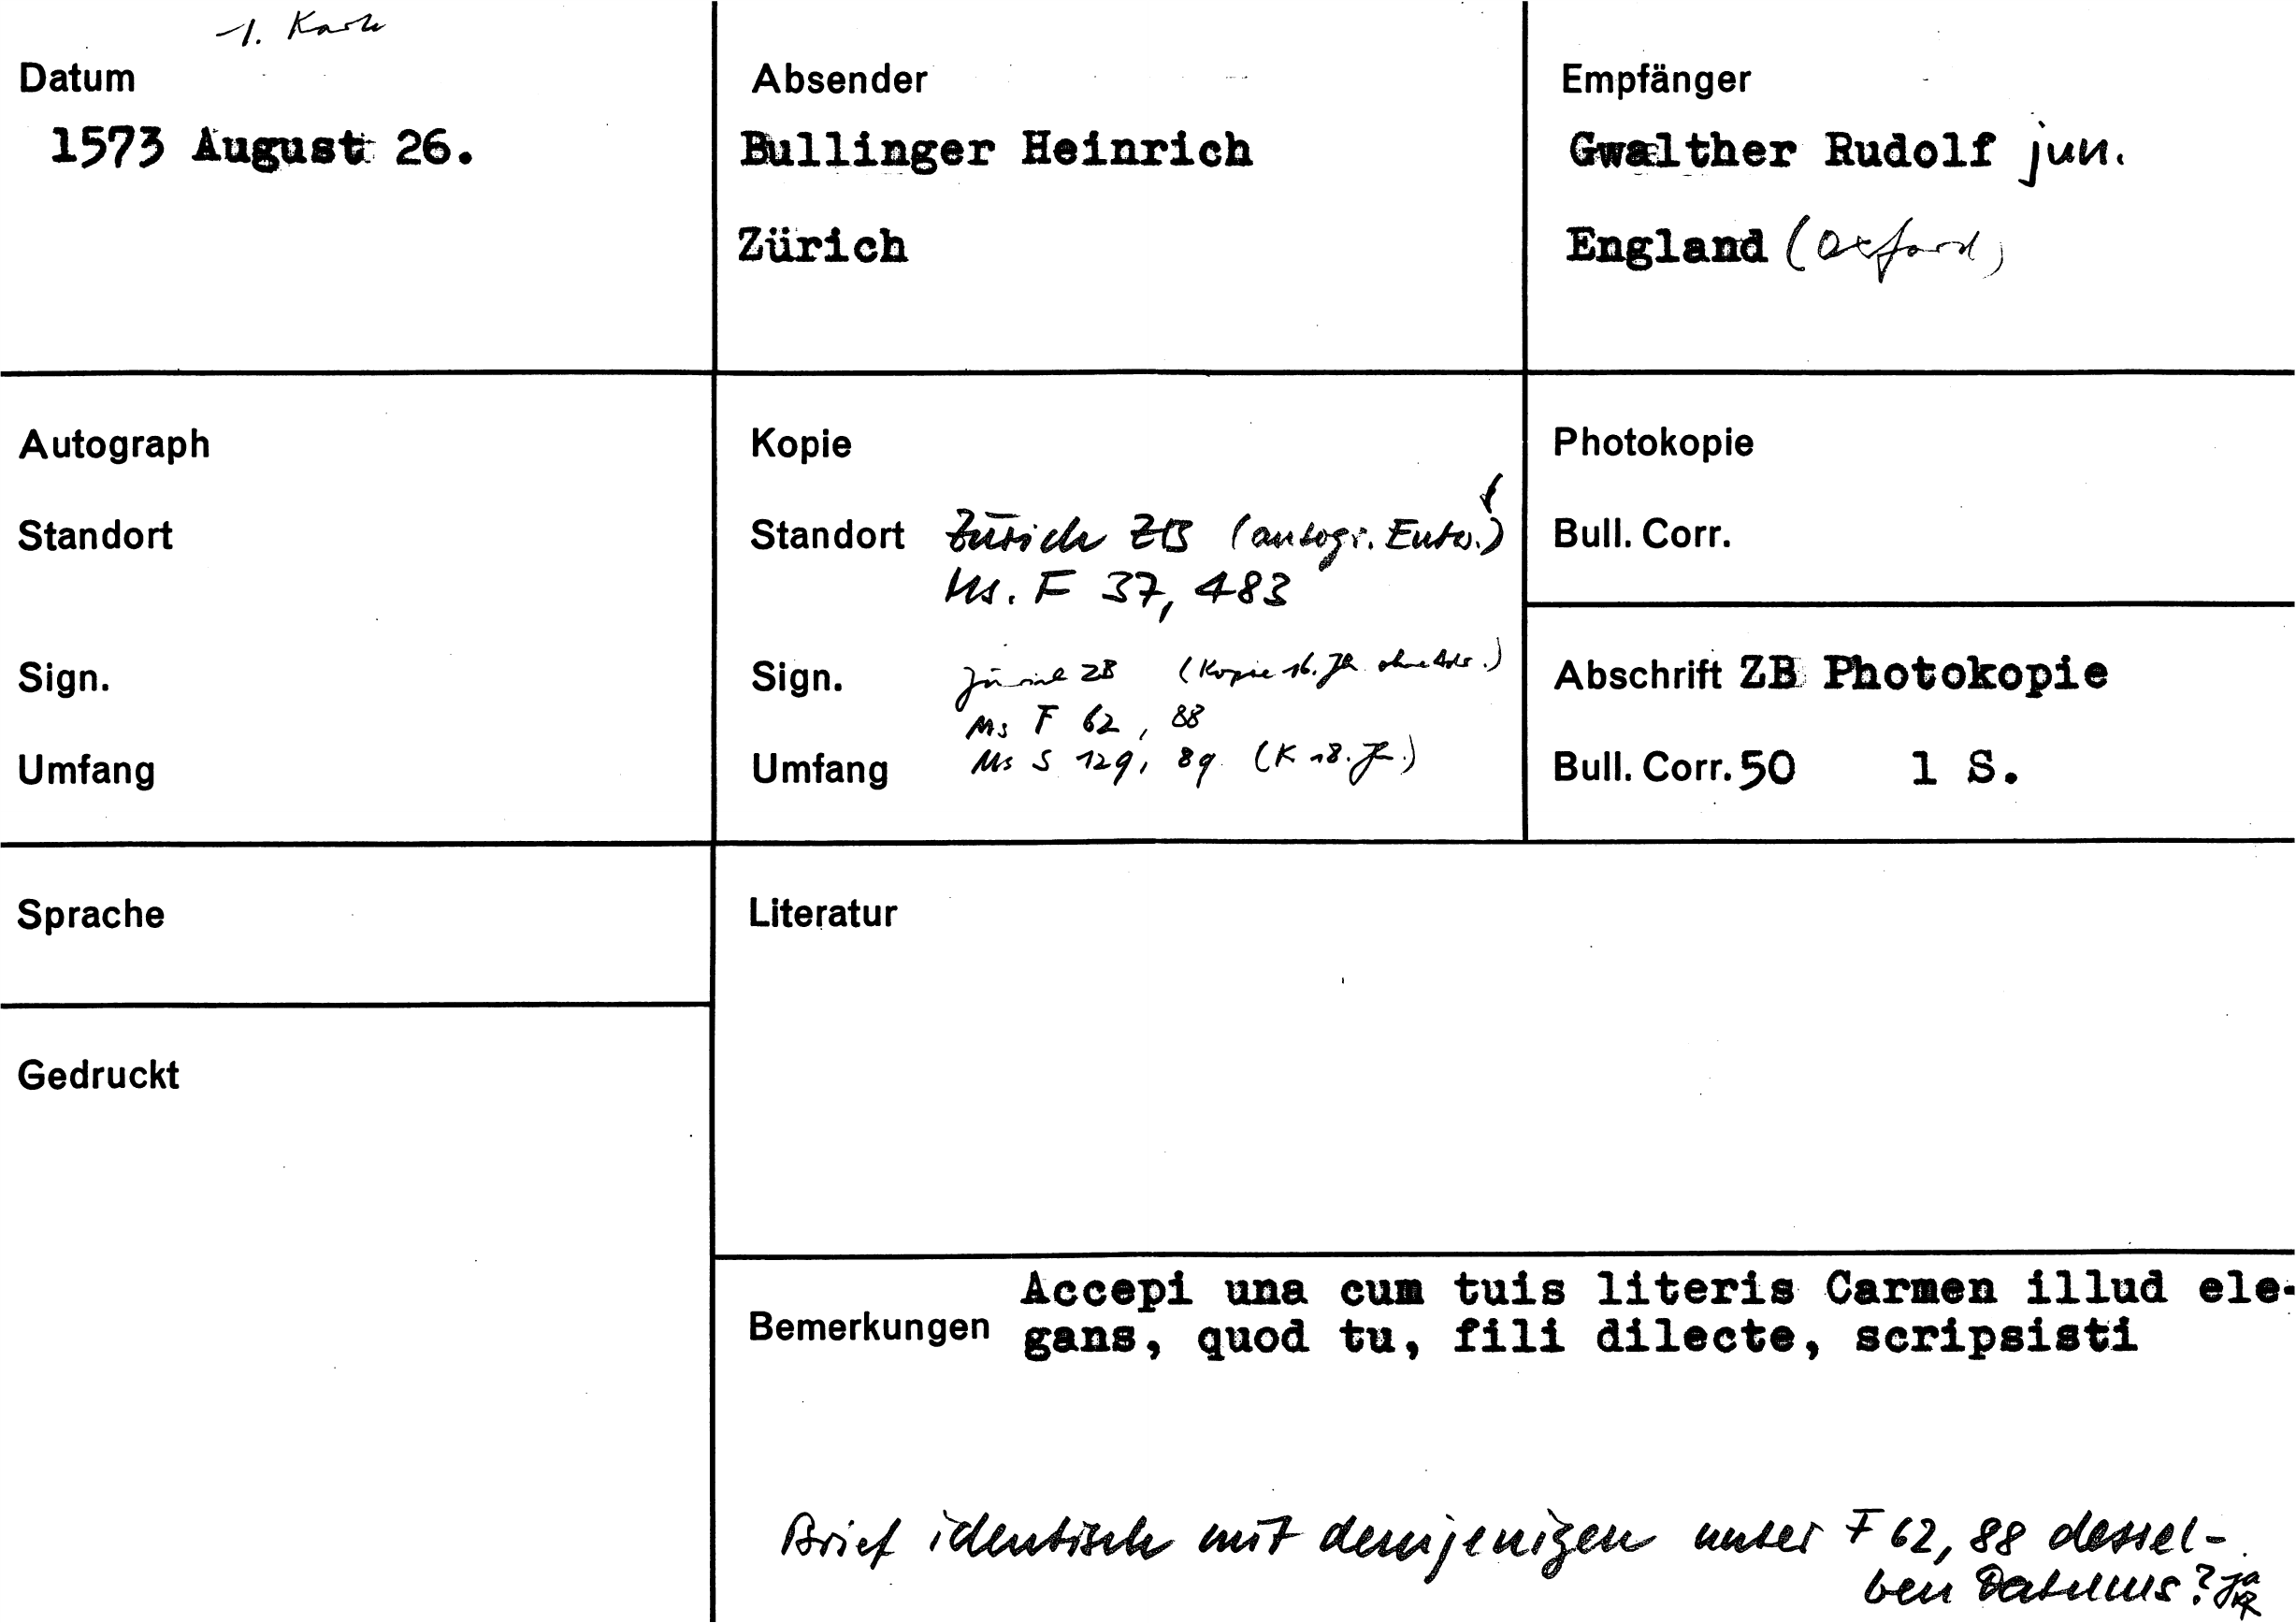 1. Karte
Datum
1573 August 26.
Absender
Bullinger Heinrich
Zürich
Empfänger
Gwalther Rudolf jun.
England (Oxford)
Autograph
Standort
Sign.
Umfang
Kopie
Standort Zürich ZB (autogr. Entw.)
Ms. F 37, 483
Sign. Zürich ZB (Kopie 16. Jh. ohne Adr.)
Ms F 62, 88
Umfang Ms S 129, 89 (K 18. Jh.)
Photokopie
Bull. Corr.
Abschrift ZB Photokopie
Bull. Corr. 50 1 S.
Sprache
Gedruckt
Literatur
Bemerkungen
Accepi una cum tuis literis Carmen illud ele-
gans, quod tu, fili dilecte, scripsisti
Brief identisch mit demjenigen unter F 62, 88 dessel-
ben Datums? ja